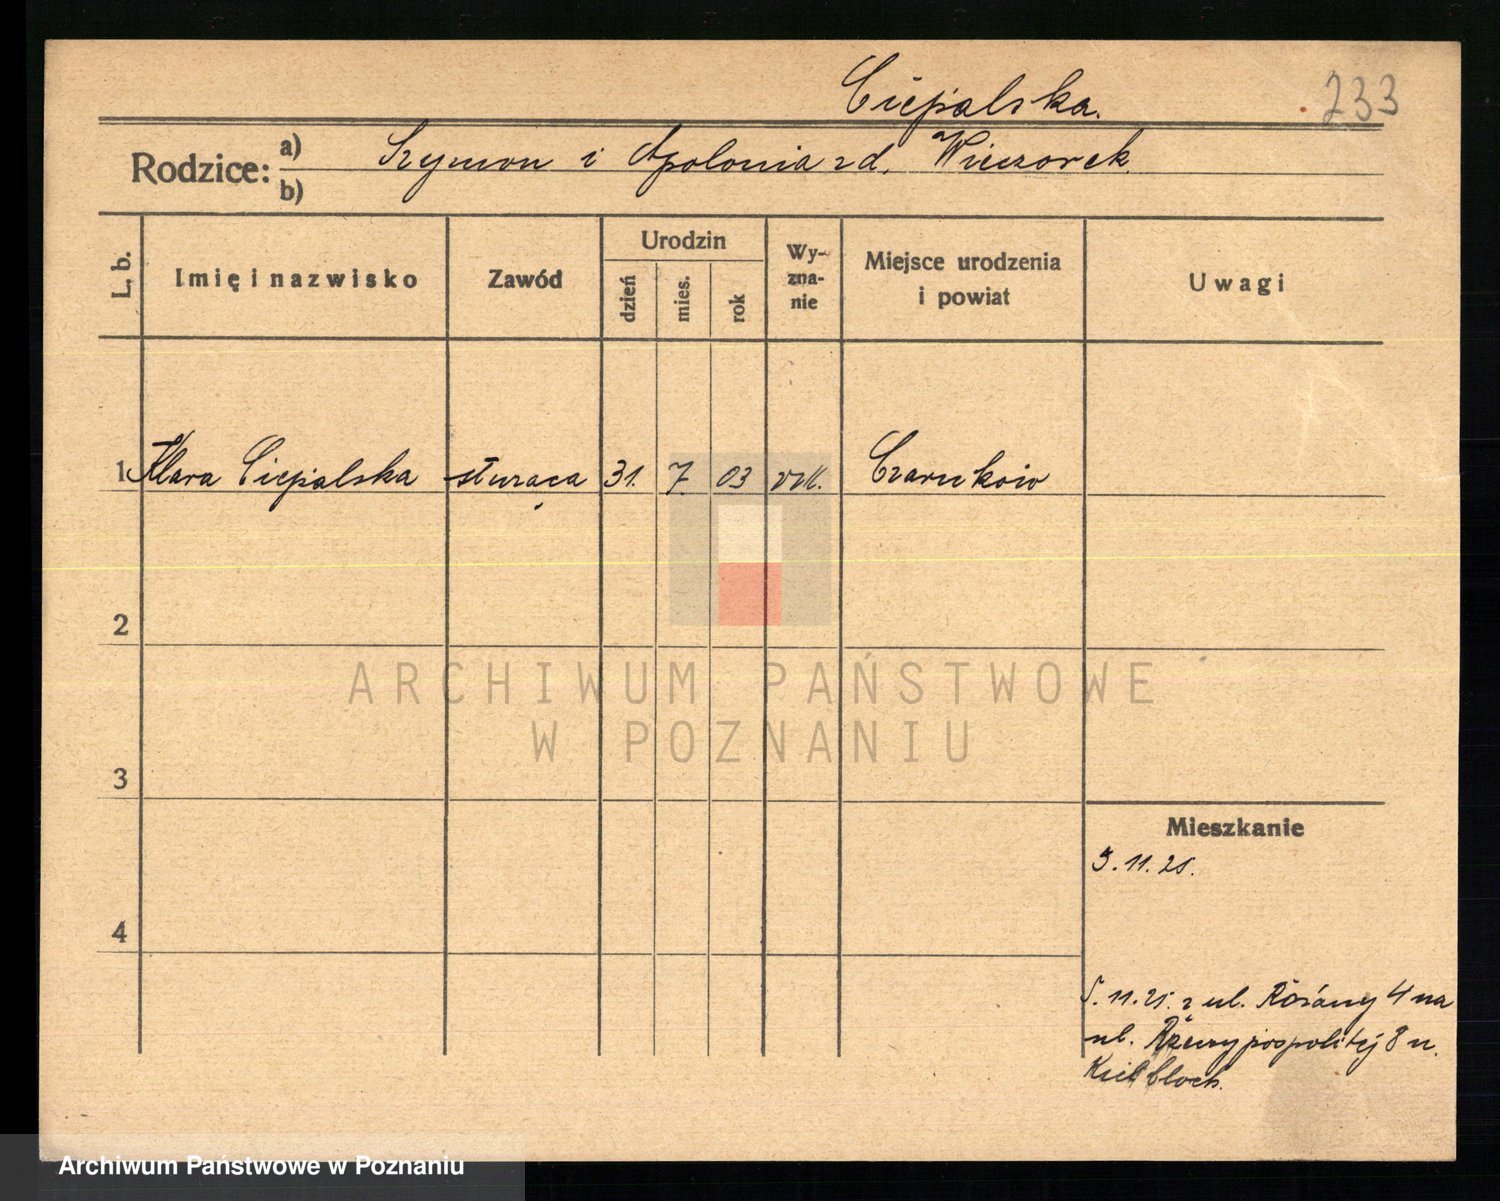 Ciepialska.
233
Rodzice:
a) Szymon i Apolonia zd. Wieczorek.
b)
L. b.
Imię i nazwisko
Zawód
Urodzin
dzień
mies.
rok
Wy-
zna-
nie
Miejsce urodzenia
i powiat
Uwagi
1 Klara Ciepialska służąca 31. 7. 03 rzk. Czarnków
2
ARCHIWUM PAŃSTWOWE
W POZNANIU
3
Mieszkanie
3.11.25.
4
5.11.25. z ul. Różany 4 na
ul. Rzeczypospolitej 8 u.
Archiwum Państwowe w Poznaniu